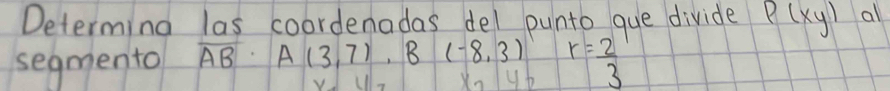 Determina las coordenadas del punto que divide P(xy) al
segmento \overline{AB} . A (3,7) . B (-8,3) r = \frac{2}{3}
x₂ y₂